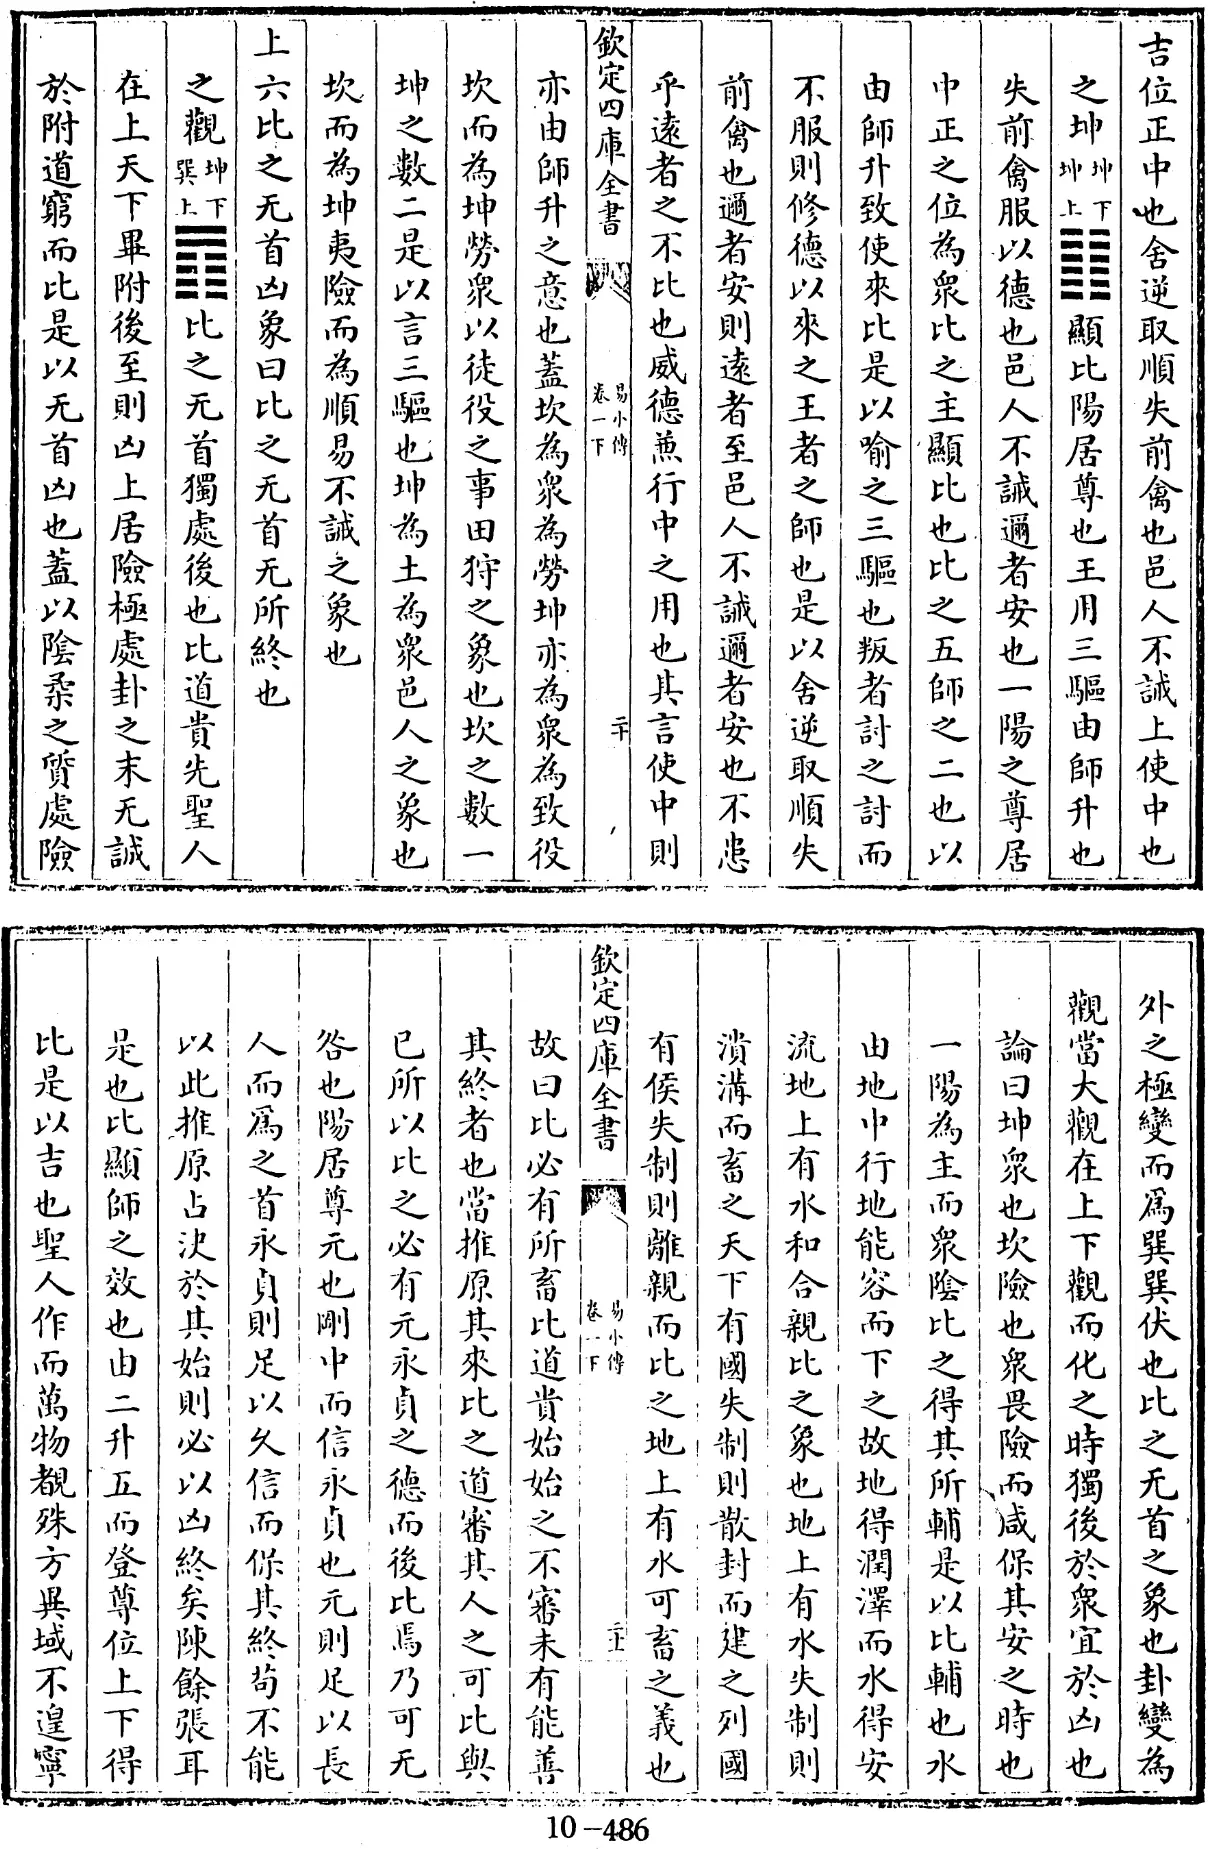 吉位正中也舍逆取順失前禽也邑人不誡上使中也
之坤坤下坤上䷁顯比陽居尊也王用三驅由師升也
失前禽服以德也邑人不誡邇者安也一陽之尊居
中正之位為衆比之主顯比也比之五師之二也以
由師升致使來比是以喻之三驅也叛者討之討而
不服則修德以來之王者之師也是以舍逆取順失
前禽也邇者安則逺者至邑人不誡邇者安也不患
乎逺者之不比也威德兼行中之用也其言使中則
欽定四庫全書
易小傳
卷一下
二十
亦由師升之意也蓋坎為衆為勞坤亦為衆為致役
坎而為坤勞衆以徒役之事田狩之象也坎之數一
坤之數二是以言三驅也坤為土為衆邑人之象也
坎而為坤夷險而為順易不誡之象也
上六比之无首凶象曰比之无首无所終也
之觀坤下巽上䷓比之无首獨處後也比道貴先聖人
在上天下畢附後至則凶上居險極處卦之末无誠
於附道窮而比是以无首凶也蓋以陰柔之質處險
外之極變而為巽巽伏也比之无首之象也卦變為
觀當大觀在上下觀而化之時獨後於衆宜於凶也
論曰坤衆也坎險也衆畏險而咸保其安之時也
一陽為主而衆陰比之得其所輔是以比輔也水
由地中行地能容而下之故地得潤澤而水得安
流地上有水和合親比之象也地上有水失制則
潰溝而畜之天下有國失制則散封而建之列國
有侯失制則離親而比之地上有水可畜之義也
欽定四庫全書
易小傳
卷一下
二十一
故曰比必有所畜比道貴始始之不審未有能善
其終者也當推原其來比之道審其人之可比與
已所以比之必有元永貞之德而後比焉乃可无
咎也陽居尊元也剛中而信永貞也元則足以長
人而爲之首永貞則足以久信而保其終苟不能
以此推原占決於其始則必以凶終矣陳餘張耳
是也比顯師之效也由二升五而登尊位上下得
比是以吉也聖人作而萬物覩殊方異域不遑寧
10-486